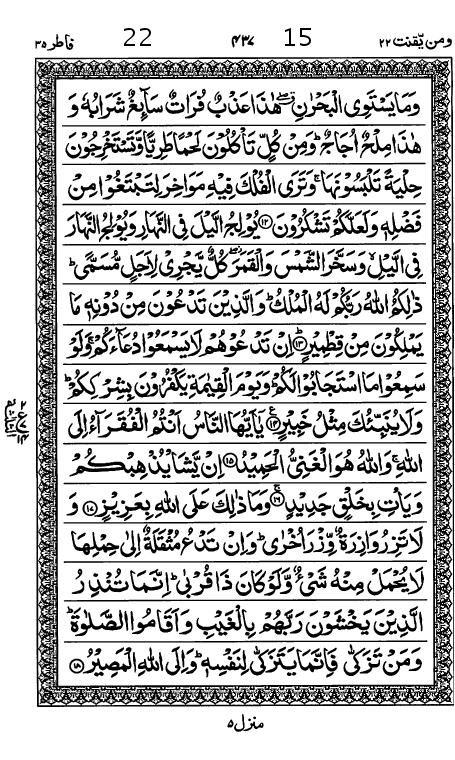 ومن يقنت ٢٢ 15 ٤٣٧ 22 فاطر ٣٥
وَمَا يَسْتَوِى الْبَحْرٰنِ ۖ هٰذَا عَذْبٌ فُرَاتٌ سَآئِغٌ شَرَابُهٗ وَ
هٰذَا مِلْحٌ اُجَاجٌ ؕ وَمِنْ كُلٍّ تَاْكُلُوْنَ لَحْمًا طَرِيًّا وَّتَسْتَخْرِجُوْنَ
حِلْيَةً تَلْبَسُوْنَهَا ۚ وَتَرَى الْفُلْكَ فِيْهِ مَوَاخِرَ لِتَبْتَغُوْا مِنْ
فَضْلِهٖ وَلَعَلَّكُمْ تَشْكُرُوْنَ ﴿١٢﴾ يُوْلِجُ الَّيْلَ فِى النَّهَارِ وَيُوْلِجُ النَّهَارَ
فِى الَّيْلِ ۙ وَسَخَّرَ الشَّمْسَ وَالْقَمَرَ ۖ كُلٌّ يَّجْرِىْ لِاَجَلٍ مُّسَمًّى ؕ
ذٰلِكُمُ اللّٰهُ رَبُّكُمْ لَهُ الْمُلْكُ ؕ وَالَّذِيْنَ تَدْعُوْنَ مِنْ دُوْنِهٖ مَا
يَمْلِكُوْنَ مِنْ قِطْمِيْرٍ ﴿١٣﴾ اِنْ تَدْعُوْهُمْ لَا يَسْمَعُوْا دُعَآءَكُمْ ۚ وَلَوْ
سَمِعُوْا مَا اسْتَجَابُوْا لَكُمْ ؕ وَيَوْمَ الْقِيٰمَةِ يَكْفُرُوْنَ بِشِرْكِكُمْ ؕ
وَلَا يُنَبِّئُكَ مِثْلُ خَبِيْرٍ ﴿١٤﴾ يٰۤاَيُّهَا النَّاسُ اَنْتُمُ الْفُقَرَآءُ اِلَى
اللّٰهِ ۚ وَاللّٰهُ هُوَ الْغَنِىُّ الْحَمِيْدُ ﴿١٥﴾ اِنْ يَّشَاْ يُذْهِبْكُمْ
وَيَاْتِ بِخَلْقٍ جَدِيْدٍ ﴿١٦﴾ وَمَا ذٰلِكَ عَلَى اللّٰهِ بِعَزِيْزٍ ﴿١٧﴾ وَ
لَا تَزِرُ وَازِرَةٌ وِّزْرَ اُخْرٰى ؕ وَاِنْ تَدْعُ مُثْقَلَةٌ اِلٰى حِمْلِهَا
لَا يُحْمَلْ مِنْهُ شَىْءٌ وَّلَوْ كَانَ ذَا قُرْبٰى ؕ اِنَّمَا تُنْذِرُ
الَّذِيْنَ يَخْشَوْنَ رَبَّهُمْ بِالْغَيْبِ وَاَقَامُوا الصَّلٰوةَ ؕ
وَمَنْ تَزَكّٰى فَاِنَّمَا يَتَزَكّٰى لِنَفْسِهٖ ؕ وَاِلَى اللّٰهِ الْمَصِيْرُ ﴿١٨﴾
منزل ٥